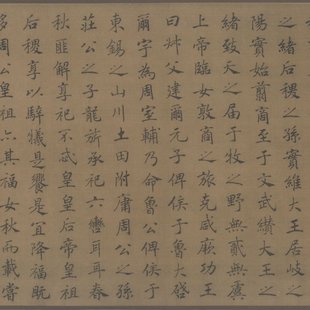 之緒后稷之孫實維大王居岐之
陽實始翦商至于文武纘大王之
緒致天之届于牧之野無貳無虞
上帝臨女敦商之旅克咸厥功王
曰叔父建爾元子俾侯于魯大啓
爾宇為周室輔乃命魯公俾侯于
東錫之山川土田附庸周公之孫
莊公之子龍旂承祀六轡耳耳春
秋匪解享祀不忒皇皇后帝皇祖
后稷享以騂犧是饗是宜降福既
多周公皇祖亦其福女秋而載嘗